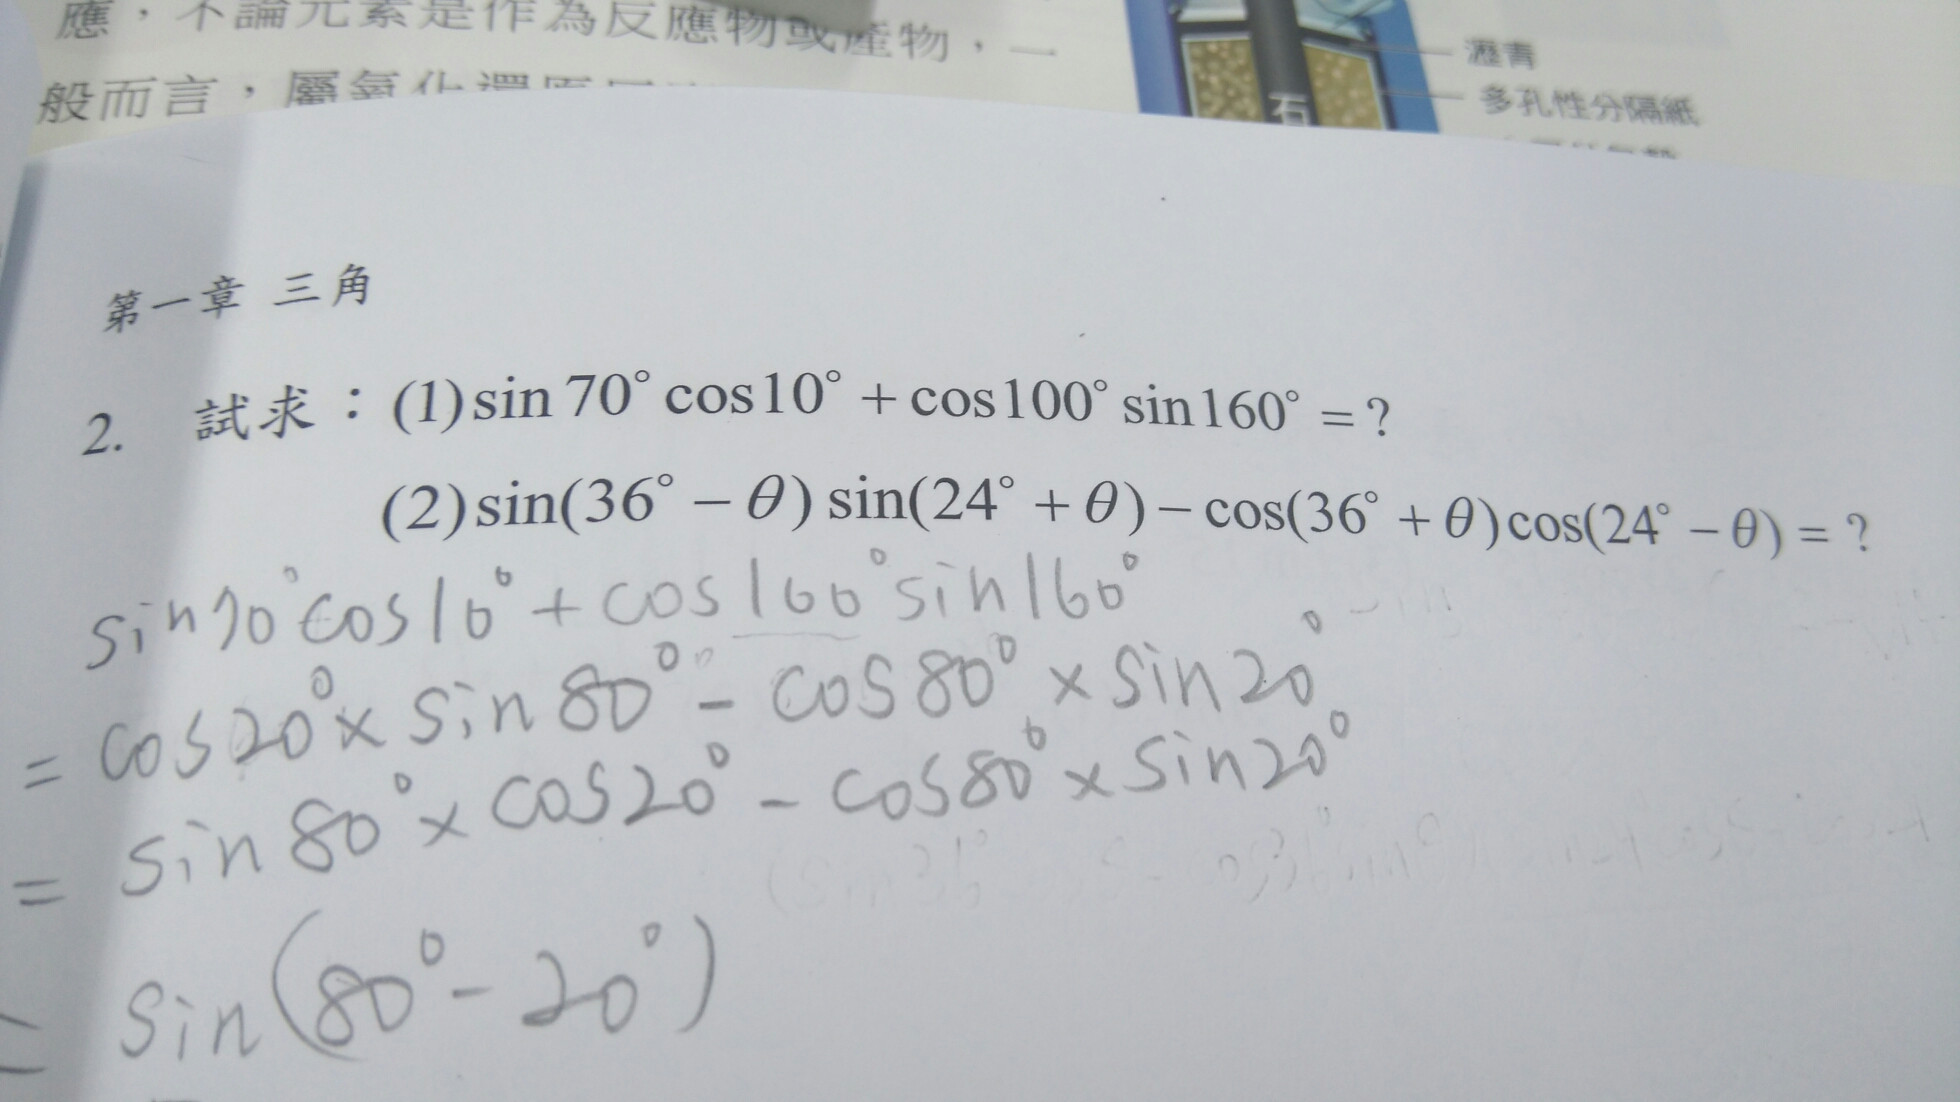 應，不論元素是作為反應物或產物，一
般而言，屬氧化還原
瀝青
多孔性分隔紙
石
第一章 三角
2. 試求：(1) sin 70° cos10° + cos100° sin160° = ?
(2) sin(36° − θ) sin(24° + θ) − cos(36° + θ) cos(24° − θ) = ?
sin70°cos10° + cos100°sin160°
= cos20° × sin80° − cos80° × sin20°
= sin80° × cos20° − cos80° × sin20°
= sin(80° − 20°)